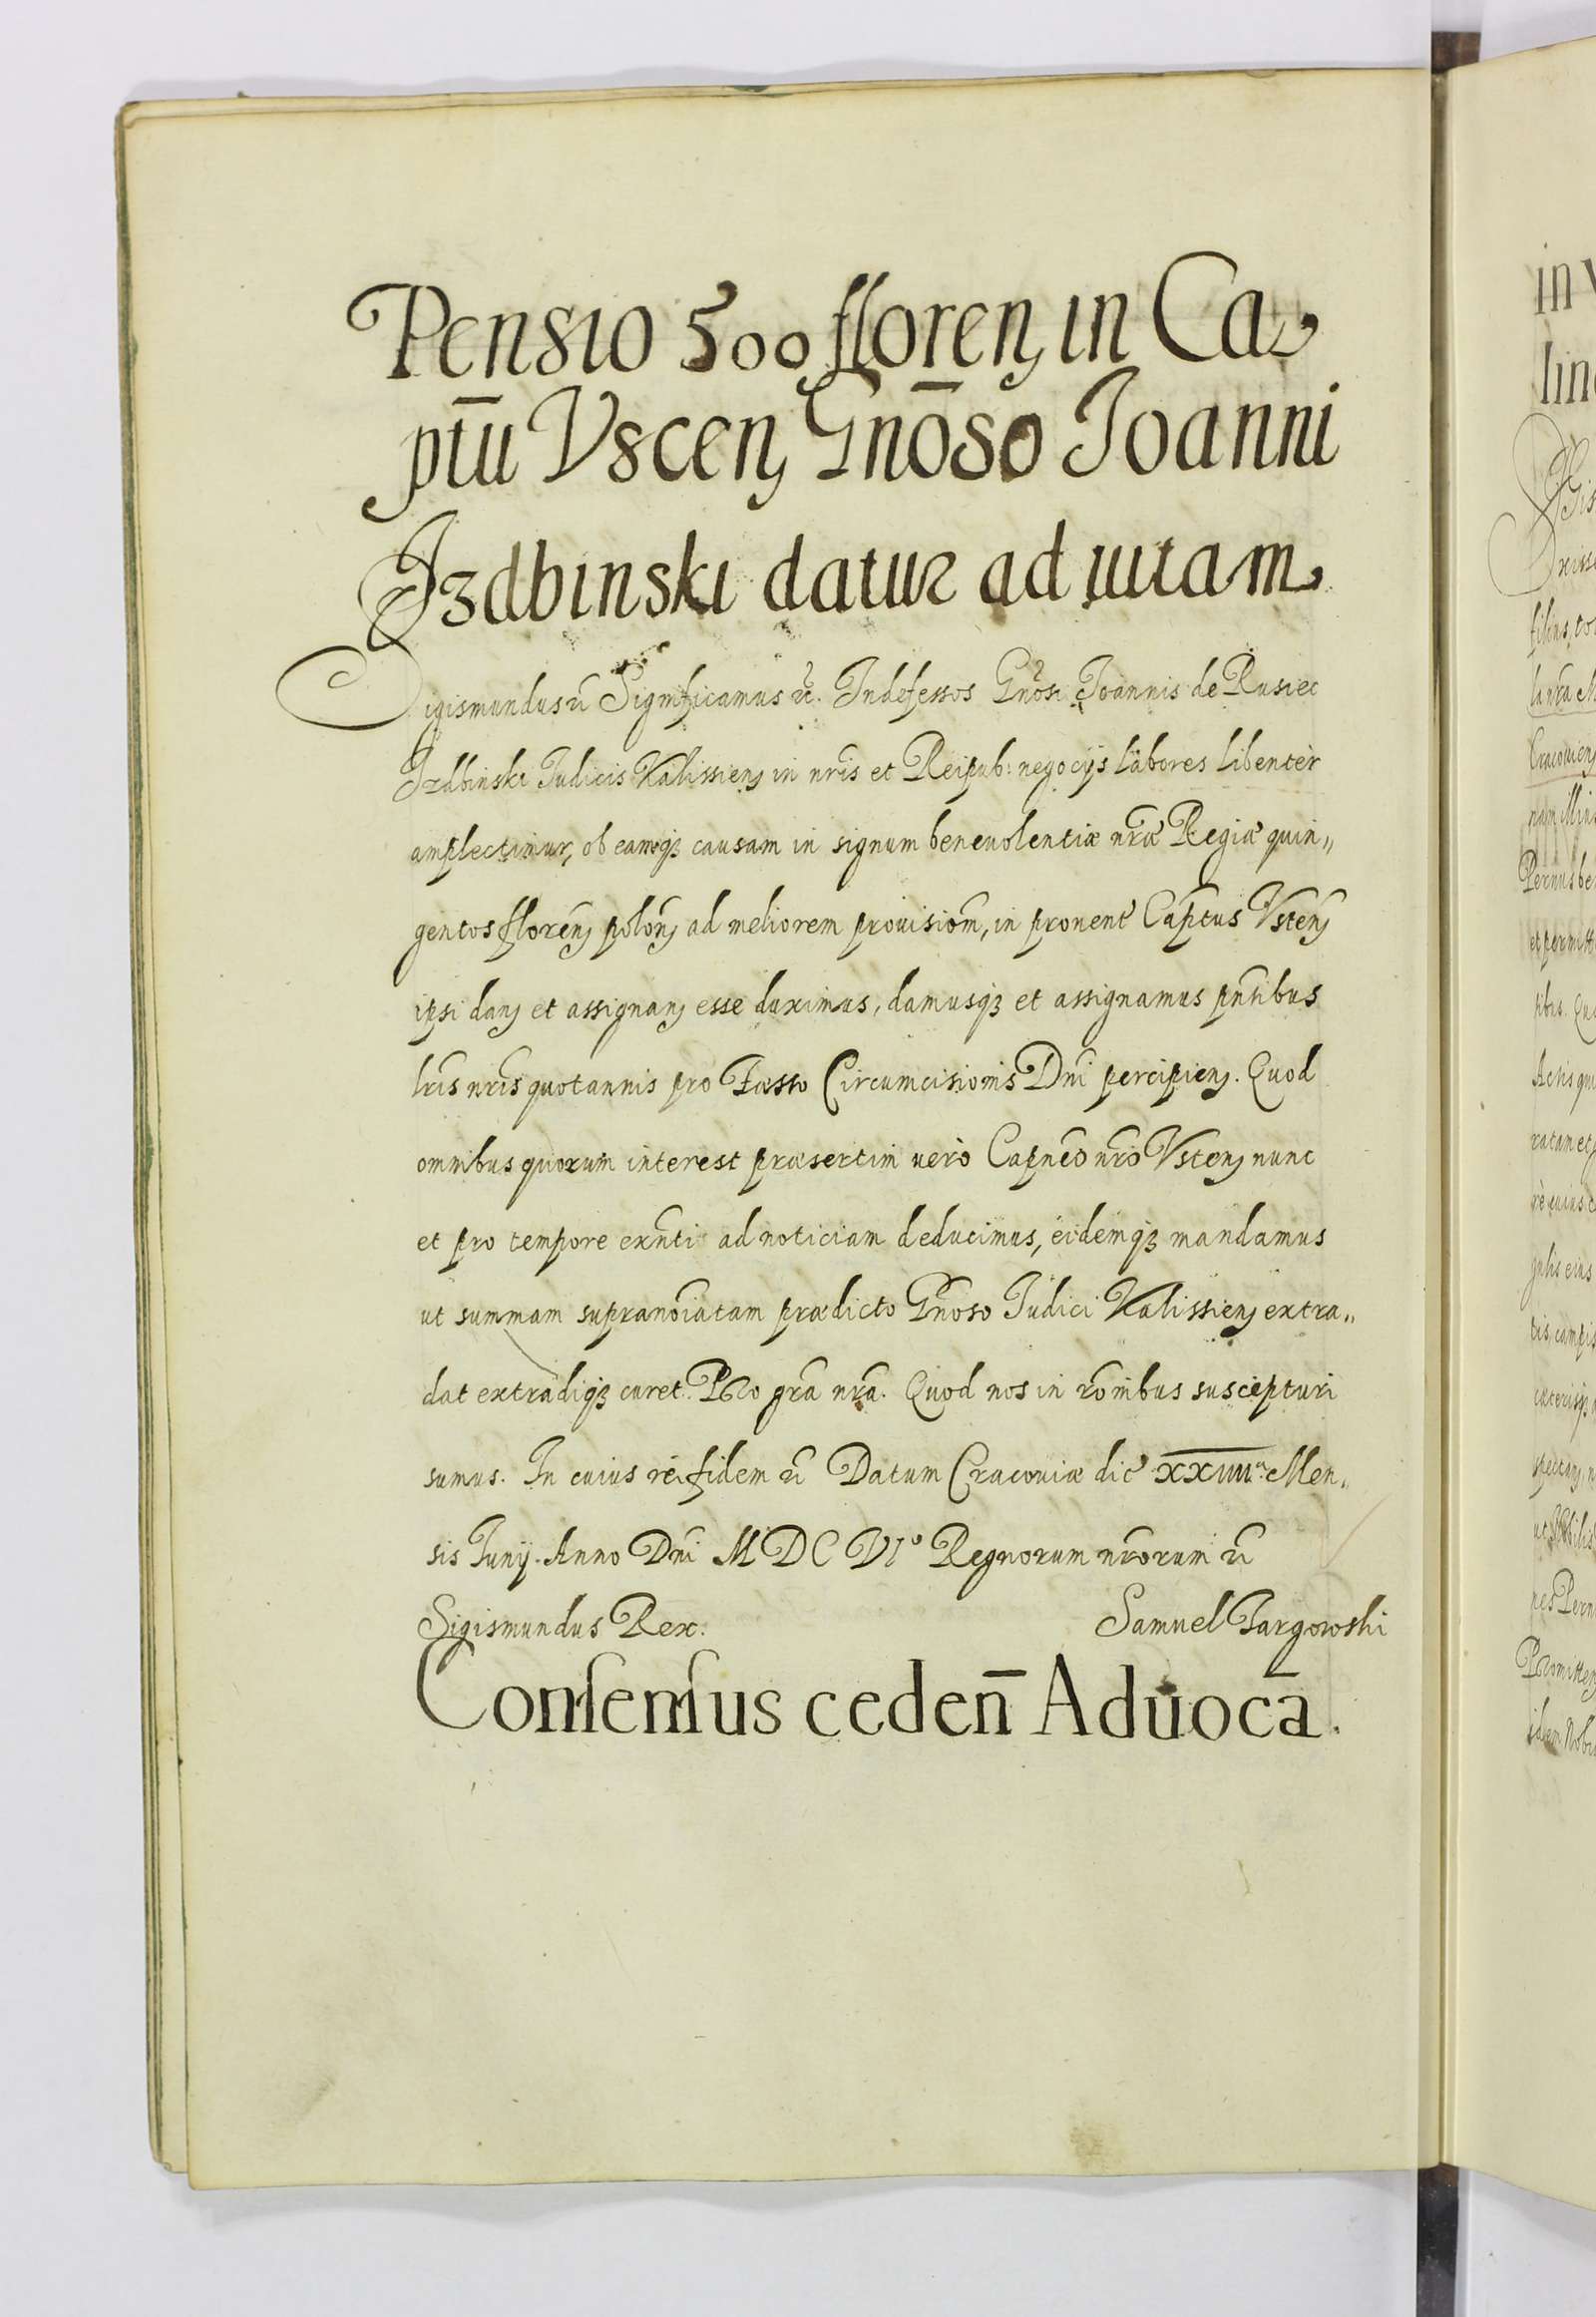 Pensio 500 floren in Ca-
ptū Vscen Gnōso Joanni
Jzdbinski datur ad uitam
Sigismundus &c̃ Significamus &c. Indefessos Gnōsi Joannis de Rusiec
Jzdbinski Judicis Kalissien in nr̃is et Reipub: negocijs labores libenter
amplectimur, ob eamq3 causam in signum beneuolentiæ nr̃æ Regiæ quin„
gentos floren polon ad meliorem prouisiom̃, in prouent Cap̃tus Vsten
ipsi dan et assignan esse duximus, damusq3 et assignamus pñtibus
lr̃is nr̃is quotannis pro Fæsto Circumcisionis Dnĩ percipien. Quod
omnibus quorum interest præsertim uerò Capneõ nr̃o Vsten nunc
et pro tempore exñti ad noticiam deducimus, eidemq3 mandamus
ut summam supranõiatam prædicto Gñoso Judici Kalissien extra„
dat extradiq3 curet. Pro gr̃a nr̃a. Quod nos in rõnibus suscepturi
sumus. In cuius rei fidem &c̃ Datum Cracouiæ die XXIIIIa. Men„
sis Junij. Anno Dnĩ MDCVIo Regnorum nr̃orum &c̃
Sigismundus Rex. Samuel Targowski
Consensus ceden̄ Aduocā.
in
lin
filius, to
la nr̃a
Cracouien
nam
Pernus be
et permitt
Actis qu
ratam et
rè cuius
gulis eius
tis, campis
cæterisq3
spectan
Promitten
idem Nobi